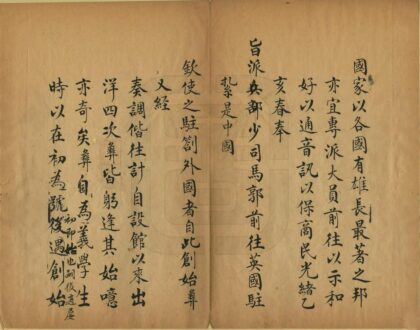 國家以各國有雄長最著之邦
亦宜專派大員前往以示和
好以通音訊以保商民光緒乙
亥春奉
旨派兵部少司馬郭前往英國駐
紮是中國
欽使之駐劄外國者自此創始彝
又經
奏調偕往計自設館以來出
洋四次彝皆躬逢其始噫
亦奇矣彝自為義學生
初即始也嗣後
時以在初為號後遇創始